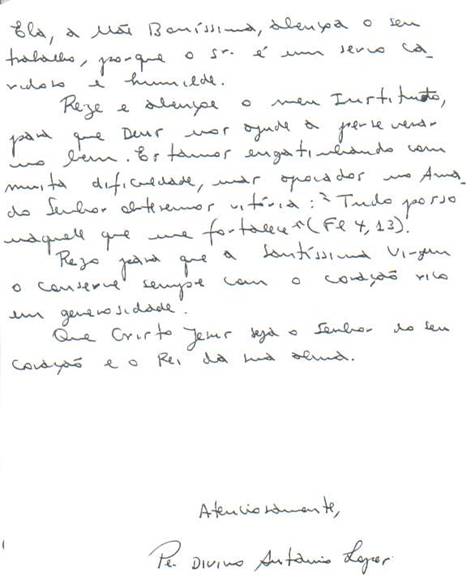 Ela, a Mãe Boníssima, abençoa o seu
trabalho, porque o Sr. é um servo ca-
ridoso e humilde.
Reze e abençoe o meu Instituto,
para que Deus nos ajude a perseverar
no bem. Estamos engatinhando com
muita dificuldade, mas apoiados no Amor
do Senhor obteremos vitória: "Tudo posso
naquele que me fortalece" (Fl 4, 13).
Rezo para que a Santíssima Virgem
o conserve sempre com o coração rico
em generosidade.
Que Cristo Jesus seja o Senhor do seu
coração e o Rei da sua alma.
Atenciosamente,
Pe. Divino Antônio Lopes